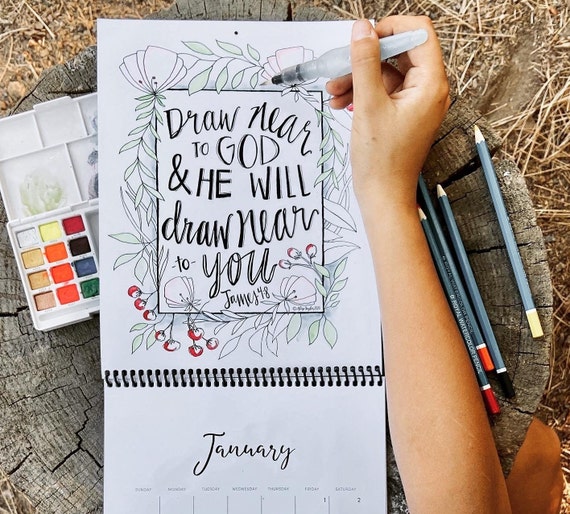 Draw near
to GOD
& HE WILL
draw near
to YOU
James 4:8
January
SUNDAY MONDAY TUESDAY WEDNESDAY THURSDAY FRIDAY SATURDAY
1 2